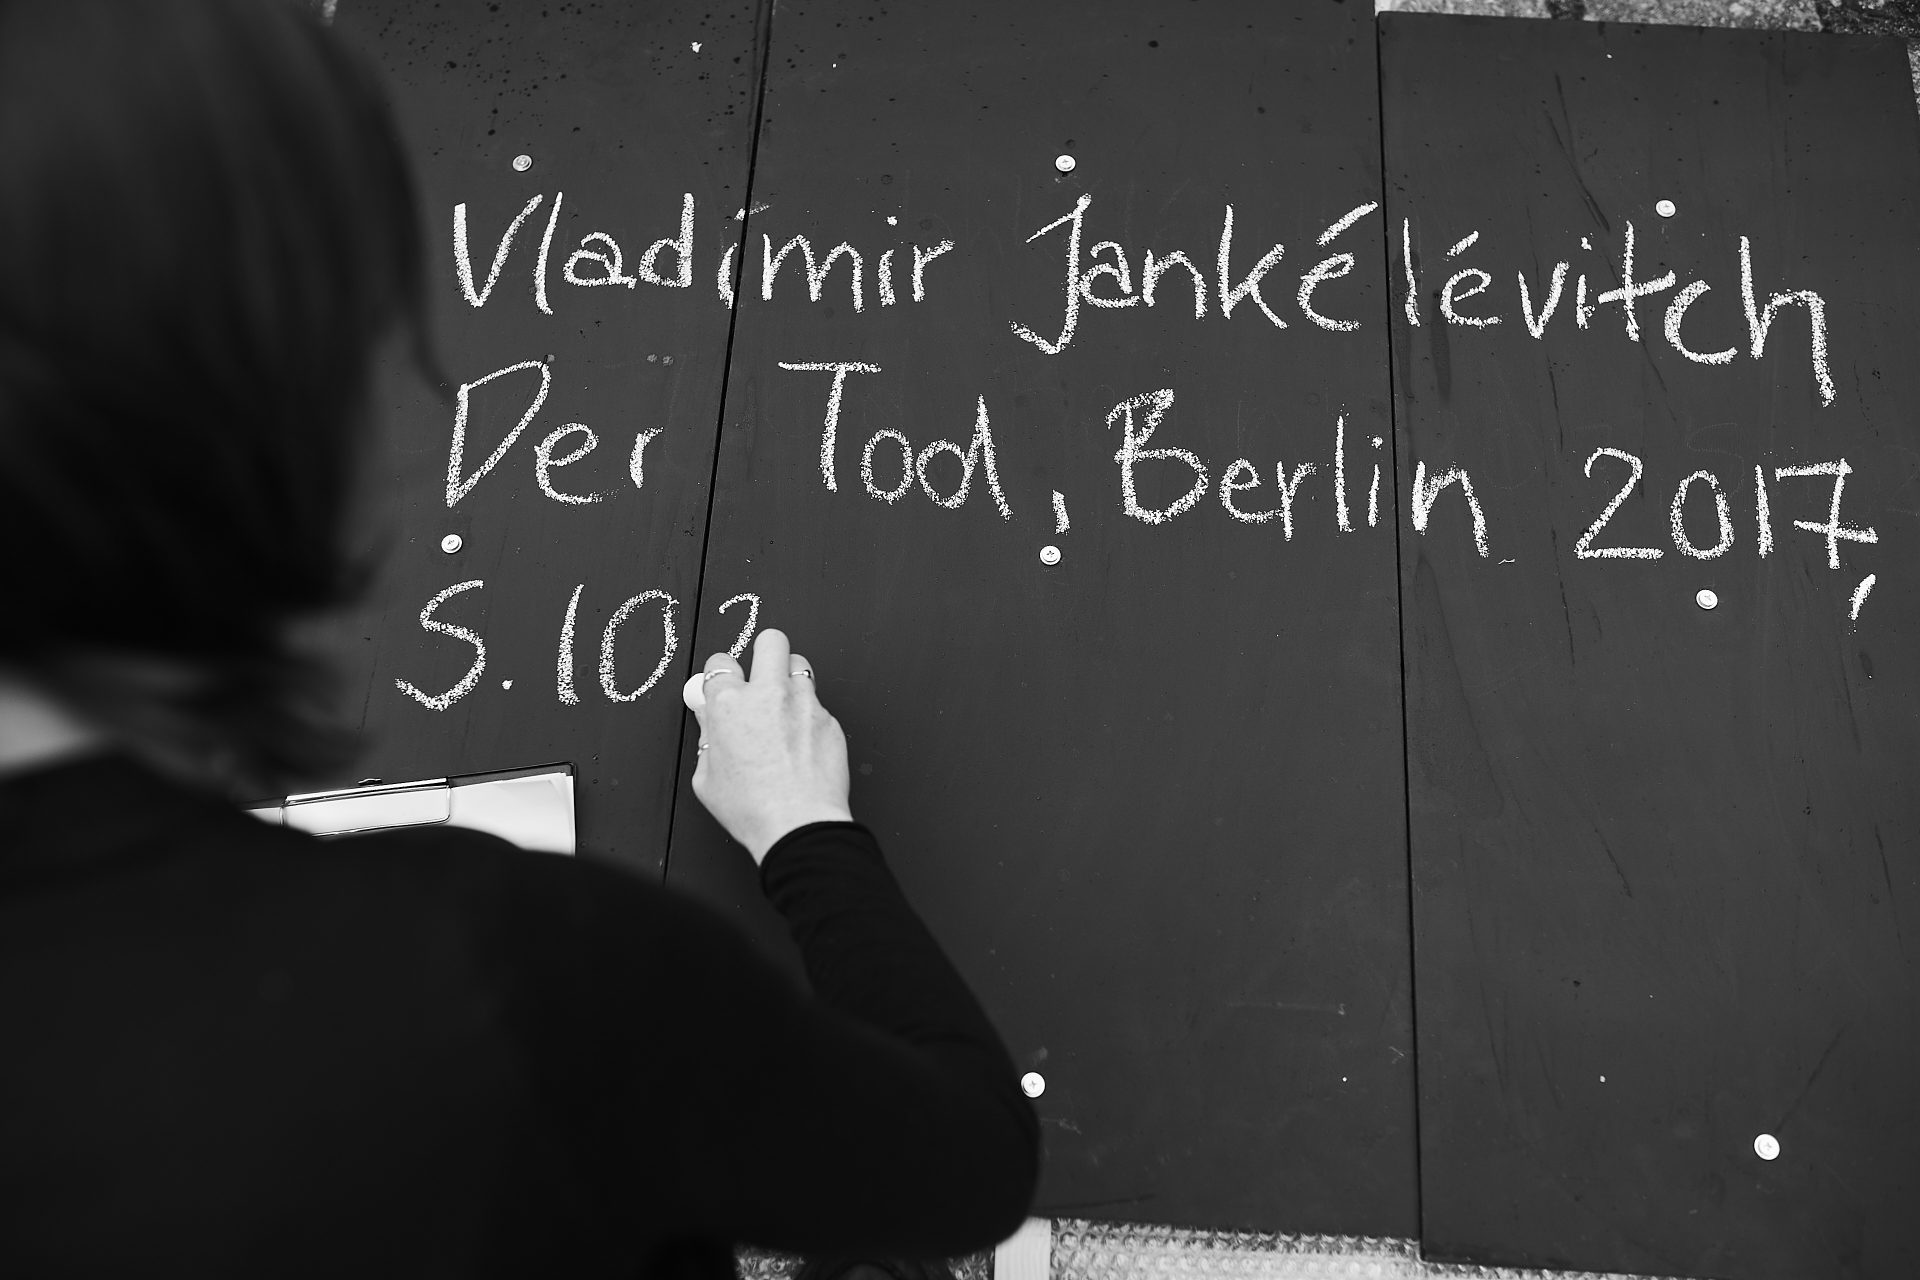 Vladimir Jankélévitch
Der Tod, Berlin 2017,
S. 10